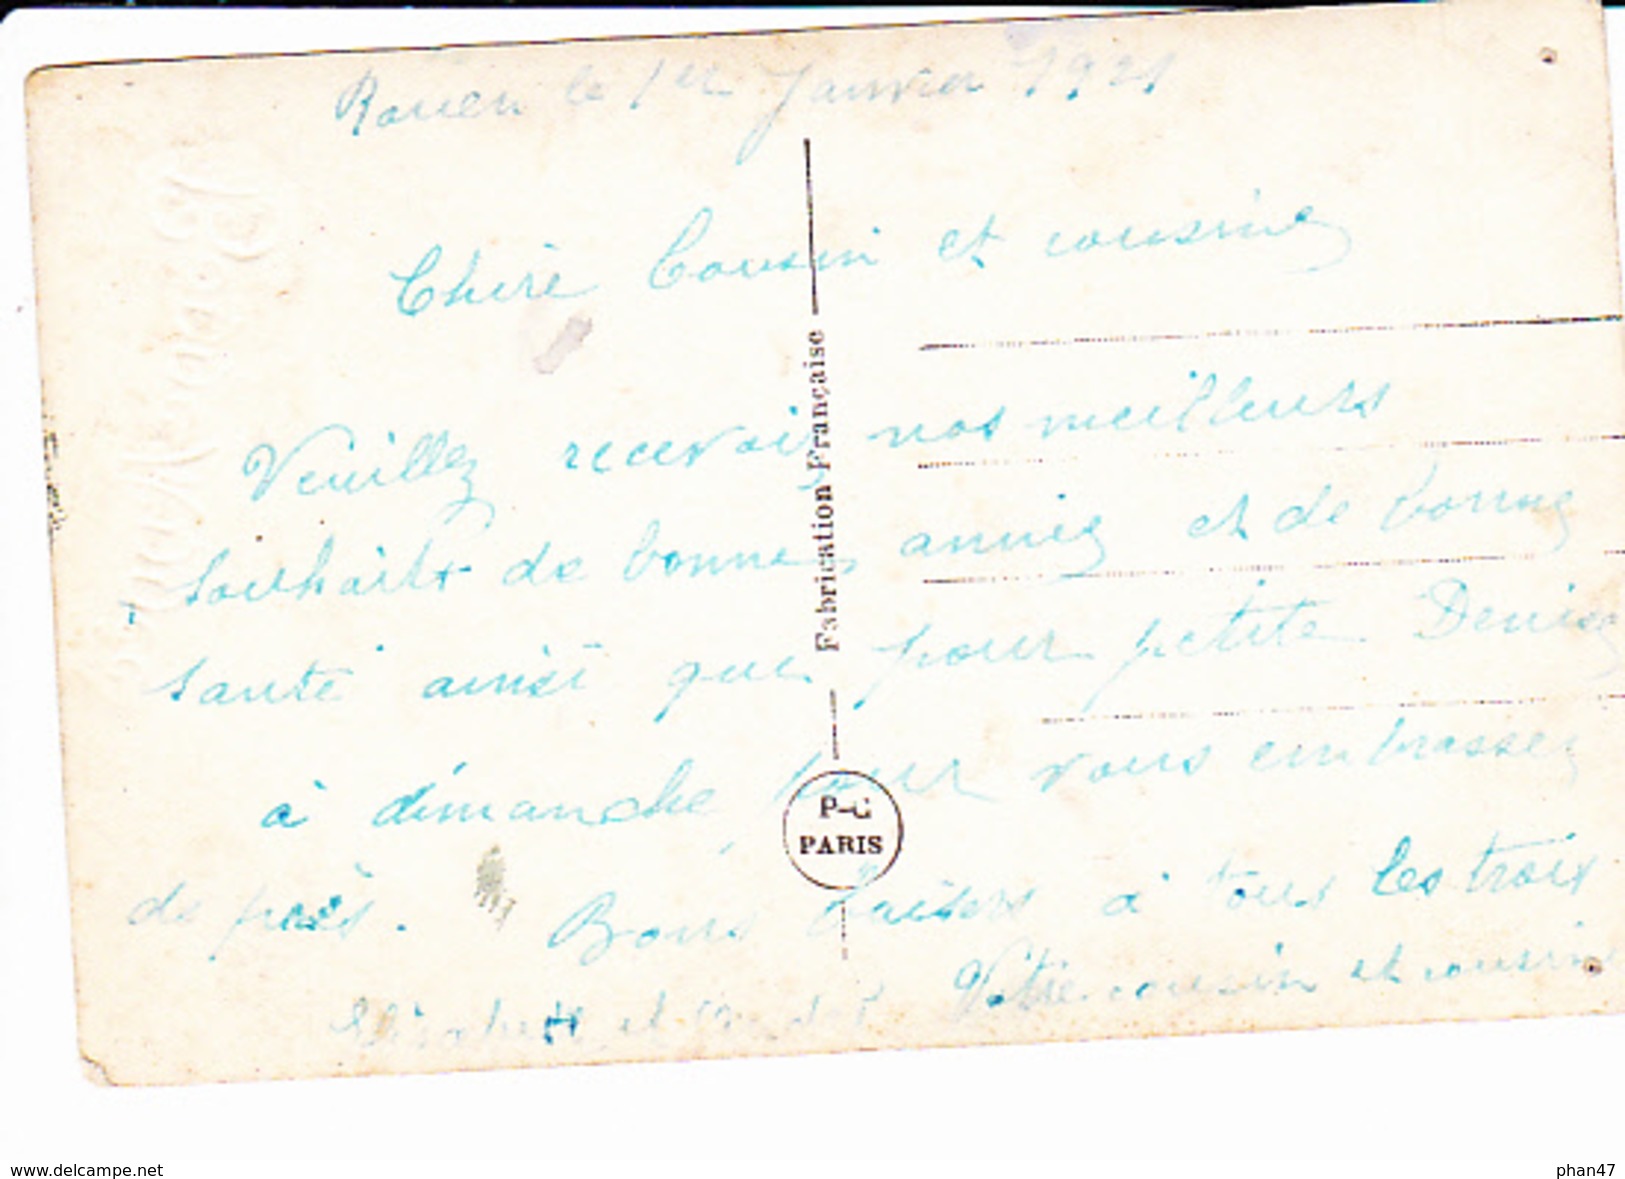 Rouen le 1er Janvier 1921
Chère Cousin et cousine
Veuillez recevoir nos meilleurs
souhaits de bonne année et de bonne
santé ainsi que pour petite Denise
à dimanche pour vous embrasser
de près. Bons baisers à tous les trois
Votre cousin et cousine
et
Fabrication Française
P-C
PARIS
Bonne Année
www.delcampe.net
phan47